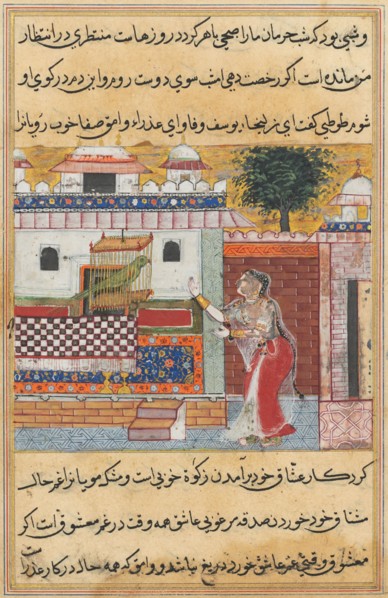 و شبی بود که شب حرمان ما را صبحی باهر گردد روزهاست منتظری در انتظار
من مانده است اگر رخصت دهی امشب سوی دوست روم و این دم در کوی او
شوم طوطی گفت ای زلیخاء یوسف وفا و ای عذراء وامق صفا خوب رویانرا
گرد کار عشاق خود برآمدن زکوة خوبی است و مشکمویانرا غم حال
مشتاق خود خوردن صدقه مرغوبی عاشق همه وقت در غم معشوق است اگر
معشوق وقتی غم عاشق خورد دریغ نباشد و وامق که همه حال در کار عذراست